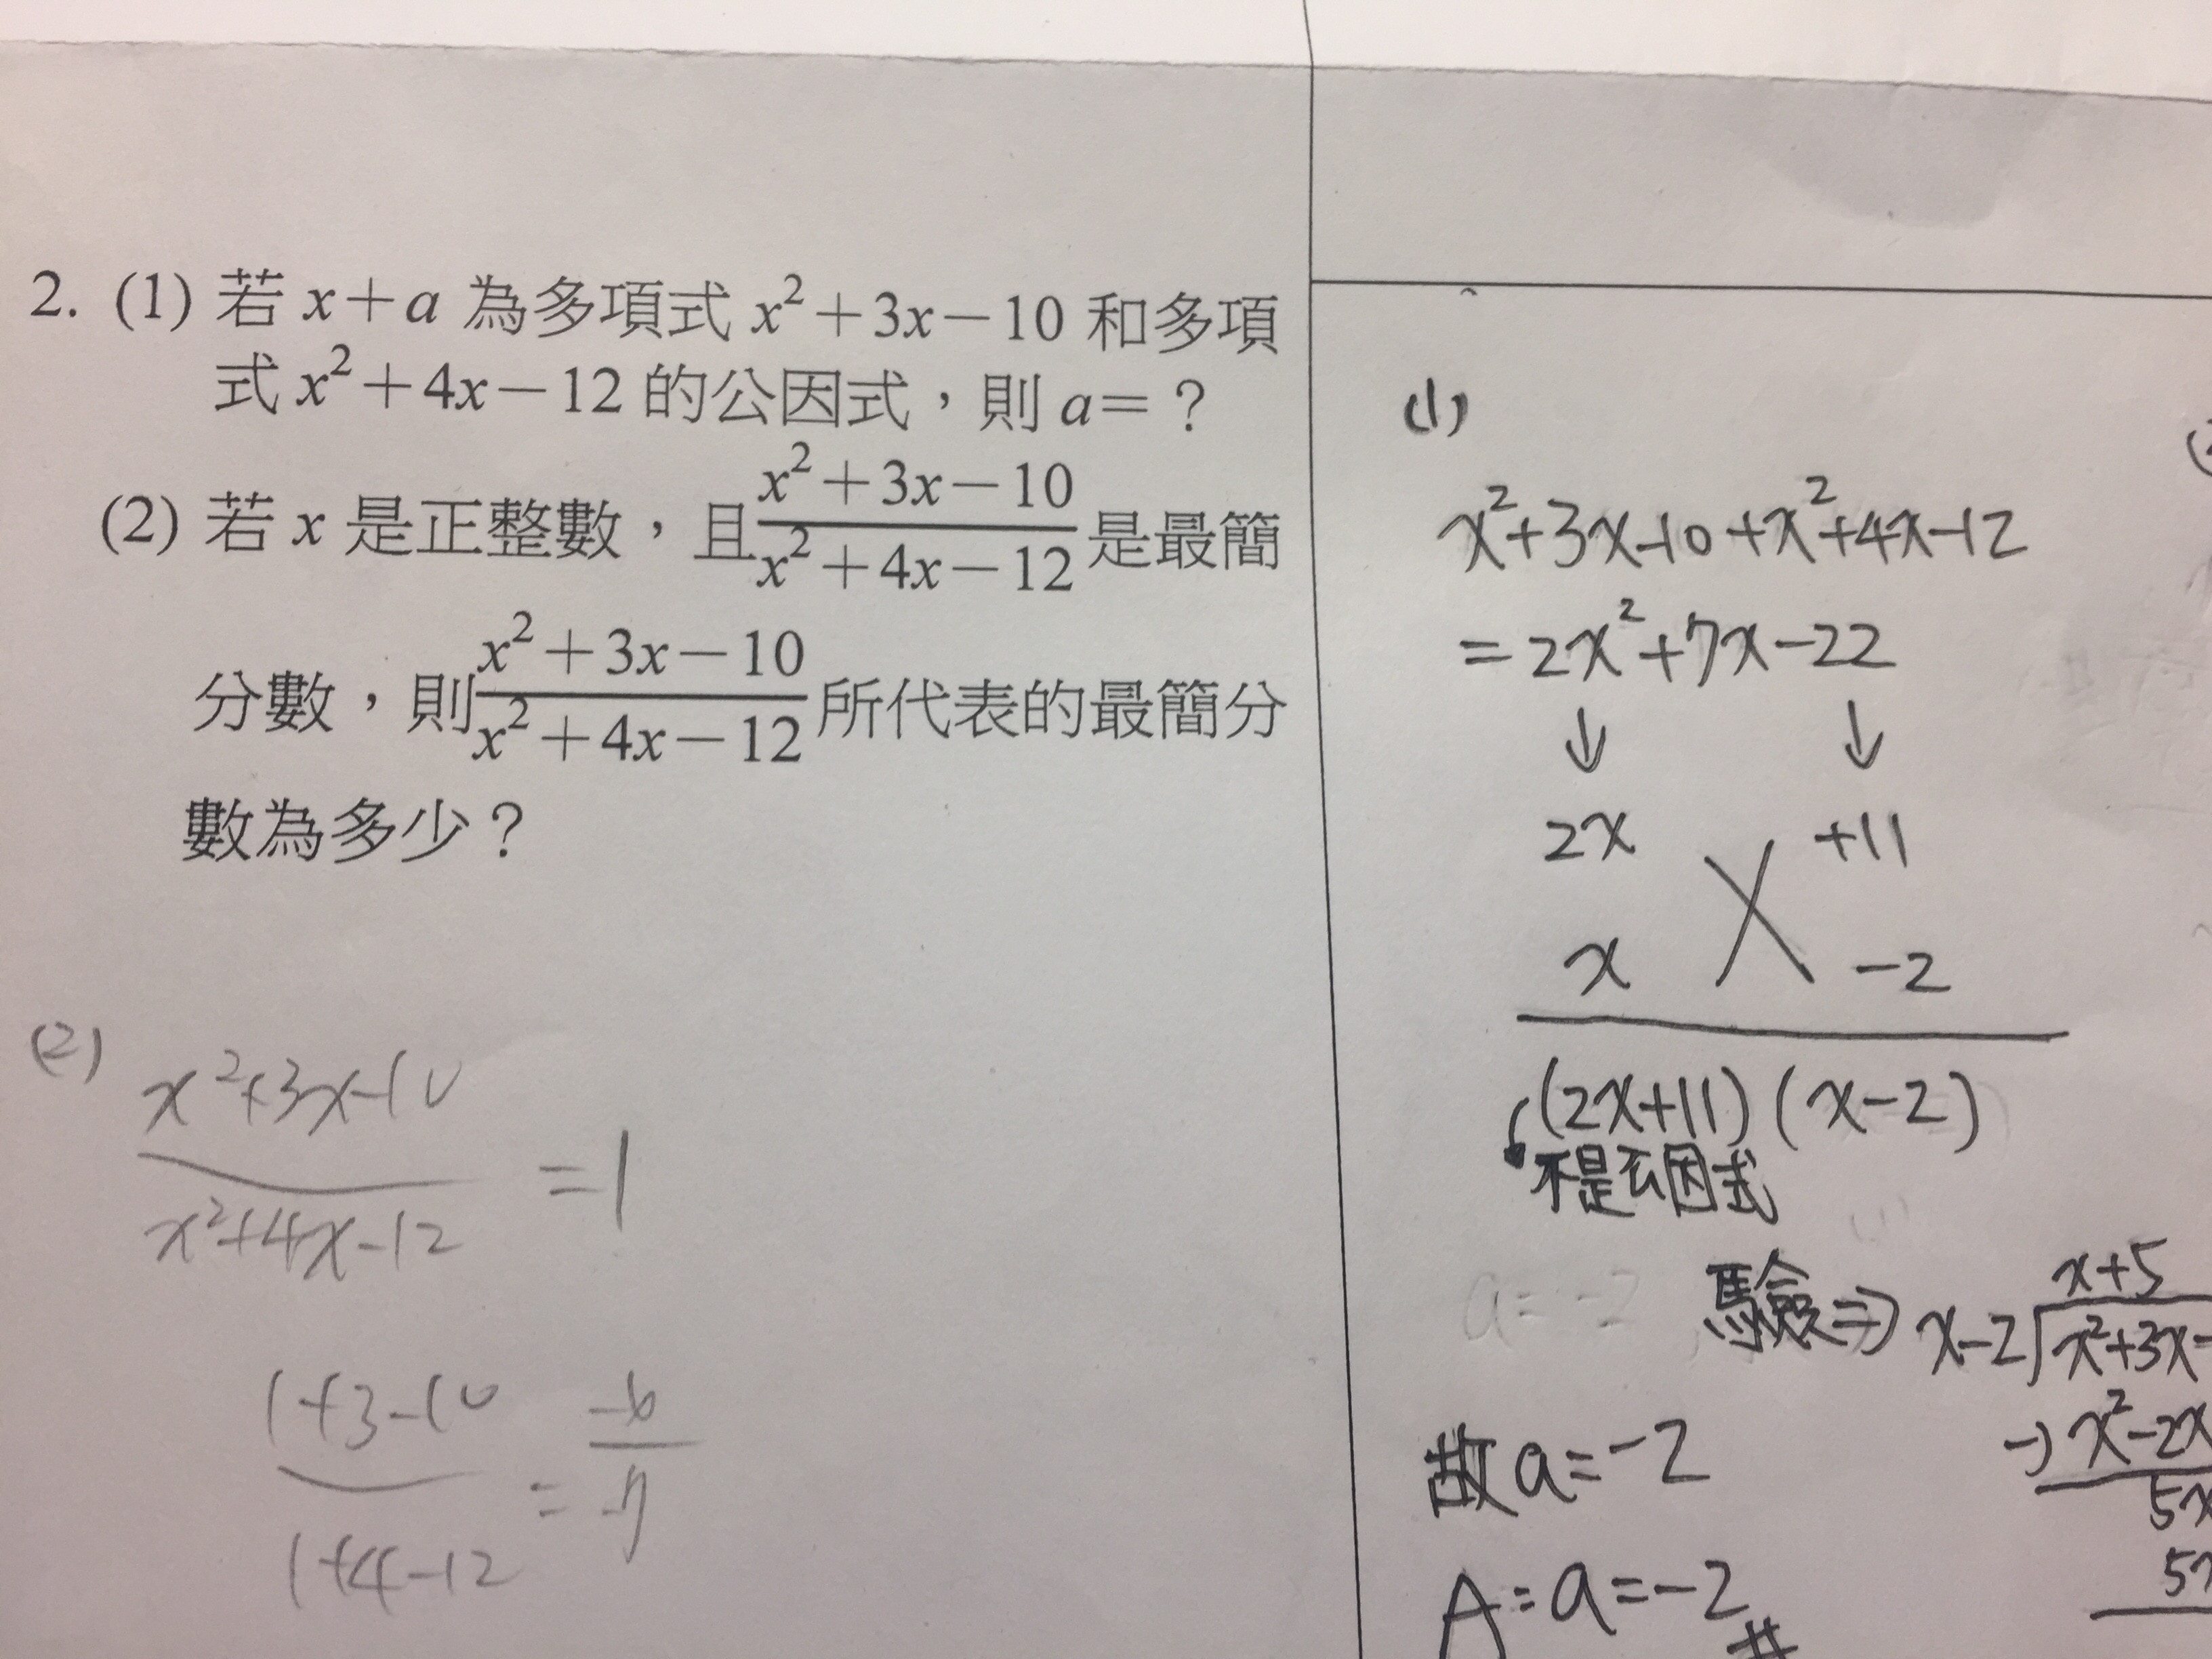 2. (1) 若 x+a 為多項式 x²+3x-10 和多項
式 x²+4x-12 的公因式，則 a=？
(2) 若 x 是正整數，且 (x²+3x-10)/(x²+4x-12) 是最簡
分數，則 (x²+3x-10)/(x²+4x-12) 所代表的最簡分
數為多少？
(2)
x²+3x-10
x²+4x-12
=1
1+3-10
1+4-12
=
-6
-7
(1)
x²+3x-10+x²+4x-12
=2x²+7x-22
↓ ↓
2x +11
x -2
(2x+11)(x-2)
不是公因式
a=-2
驗⇒
x+5
x-2 x²+3x-
-) x²-2x
5x
5x
故a=-2
A:a=-2#